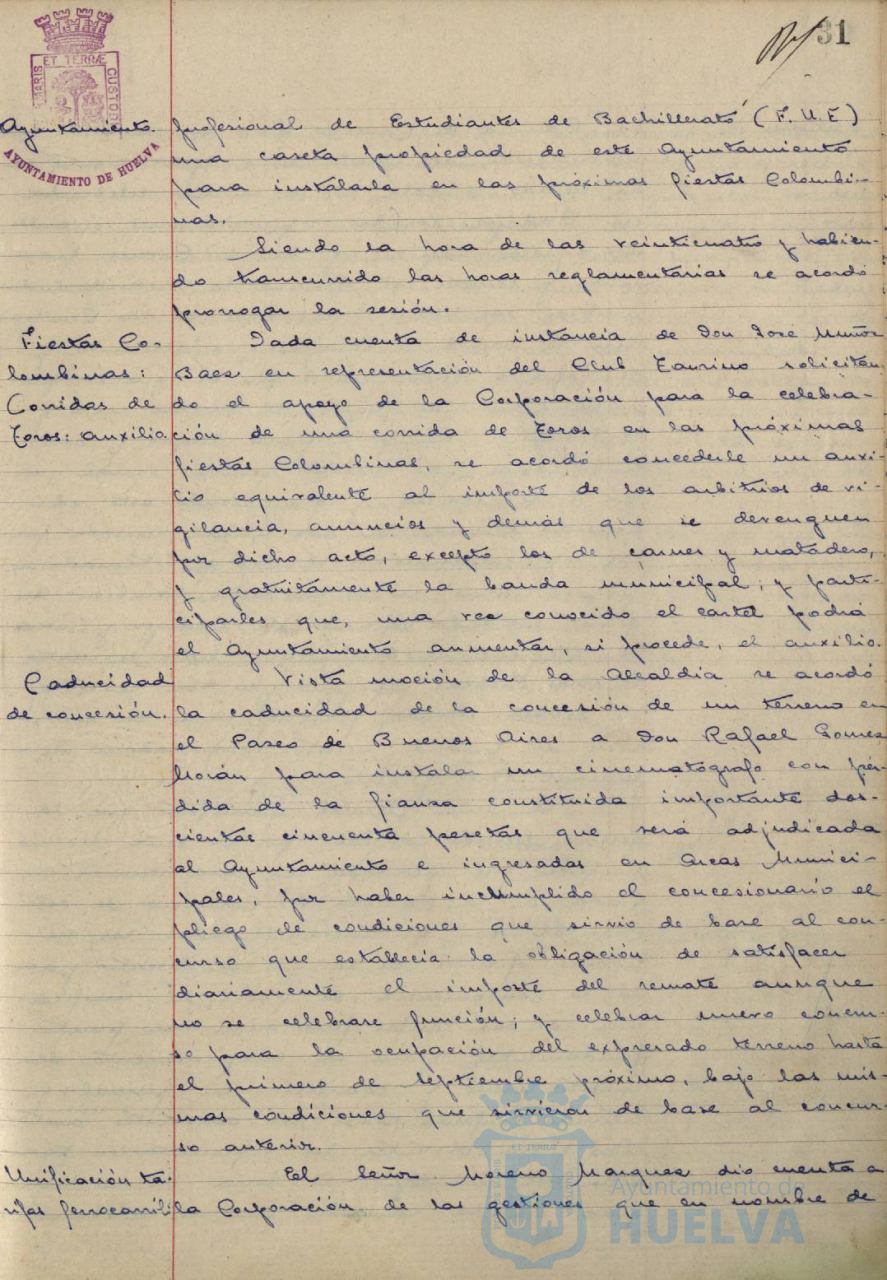 31
ET TERRÆ
MARIS
CUSTOD
AYUNTAMIENTO DE HUELVA
Ayuntamiento.
profesional de Estudiantes de Bachillerato (F. U. E)
una caseta propiedad de este Ayuntamiento
para instalarla en las próximas fiestas Colombi-
nas.
Siendo la hora de las veinticuatro y habien-
do transcurrido las horas reglamentarias se acordó
prorrogar la sesión.
Fiestas Co-
lombinas:
Corridas de
Toros: auxilio.
Dada cuenta de instancia de Don José Muñoz
Baez en representación del Club Taurino solicitan
do el apoyo de la Corporación para la celebra-
ción de una corrida de Toros en las próximas
fiestas Colombinas, se acordó concederle un auxi-
lio equivalente al importe de los arbitrios de vi-
gilancia, anuncios y demás que se devenguen
por dicho acto, excepto los de carnes y matadero,
y gratuitamente la banda municipal; y parti-
ciparles que, una vez conocido el cartel podrá
el Ayuntamiento aumentar, si procede, el auxilio.
Caducidad
de concesión.
Vista moción de la Alcaldía se acordó
la caducidad de la concesión de un terreno en
el Paseo de Buenos Aires a Don Rafael Gomez
Morán para instalar un cinematógrafo con pér-
dida de la fianza constituida importante dos-
cientas cincuenta pesetas que será adjudicada
al Ayuntamiento e ingresadas en Arcas Munici-
pales, por haber incumplido el concesionario el
pliego de condiciones que sirvio de base al con-
curso que establecía la obligación de satisfacer
diariamente el importe del remate aunque
no se celebrase función; y celebrar nuevo concur-
so para la ocupación del expresado terreno hasta
el primero de Septiembre próximo, bajo las mis-
mas condiciones que sirvieron de base al concur-
so anterior.
Unificación ta-
rifas ferrocarrili
El Señor Moreno Marquez dio cuenta a
la Corporación de las gestiones que en nombre de
ET TERRÆ
Ayuntamiento de
HUELVA